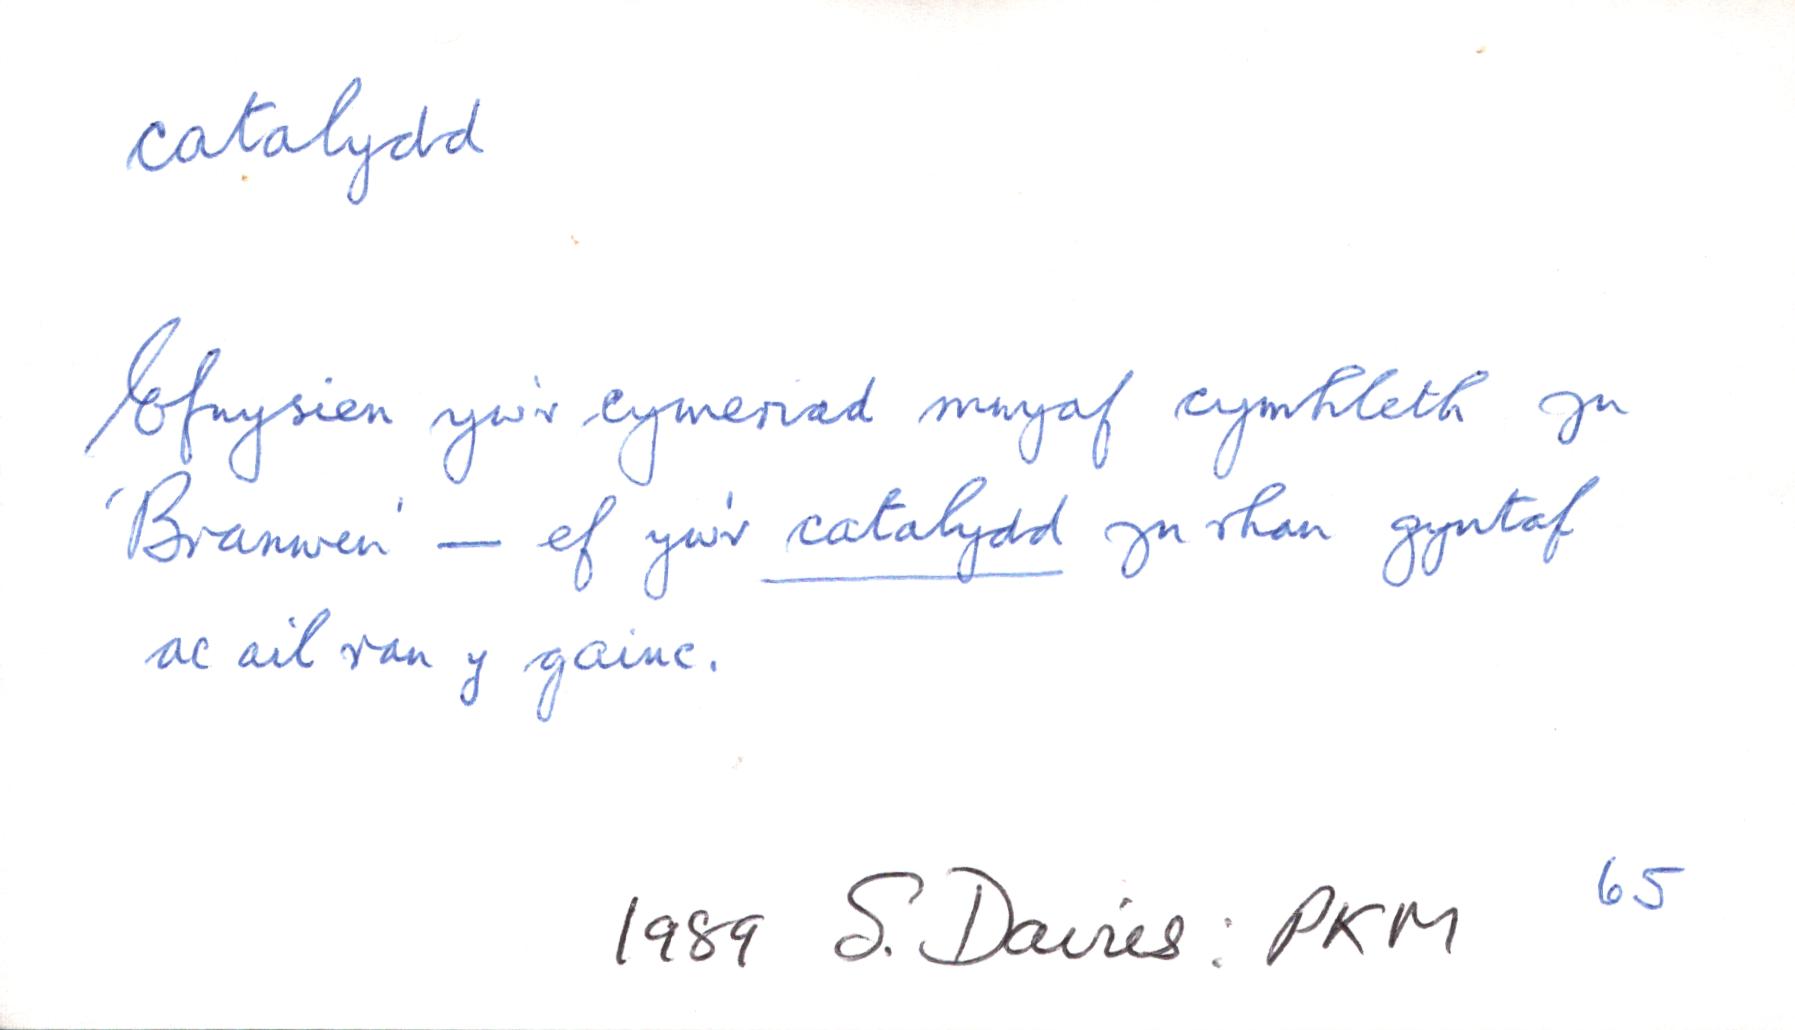 catalydd
Efnysien yw'r cymeriad mwyaf cymhleth yn
'Branwen' — ef yw'r catalydd yn rhan gyntaf
ac ail ran y gainc.
65
1989 S. Davies: PKM